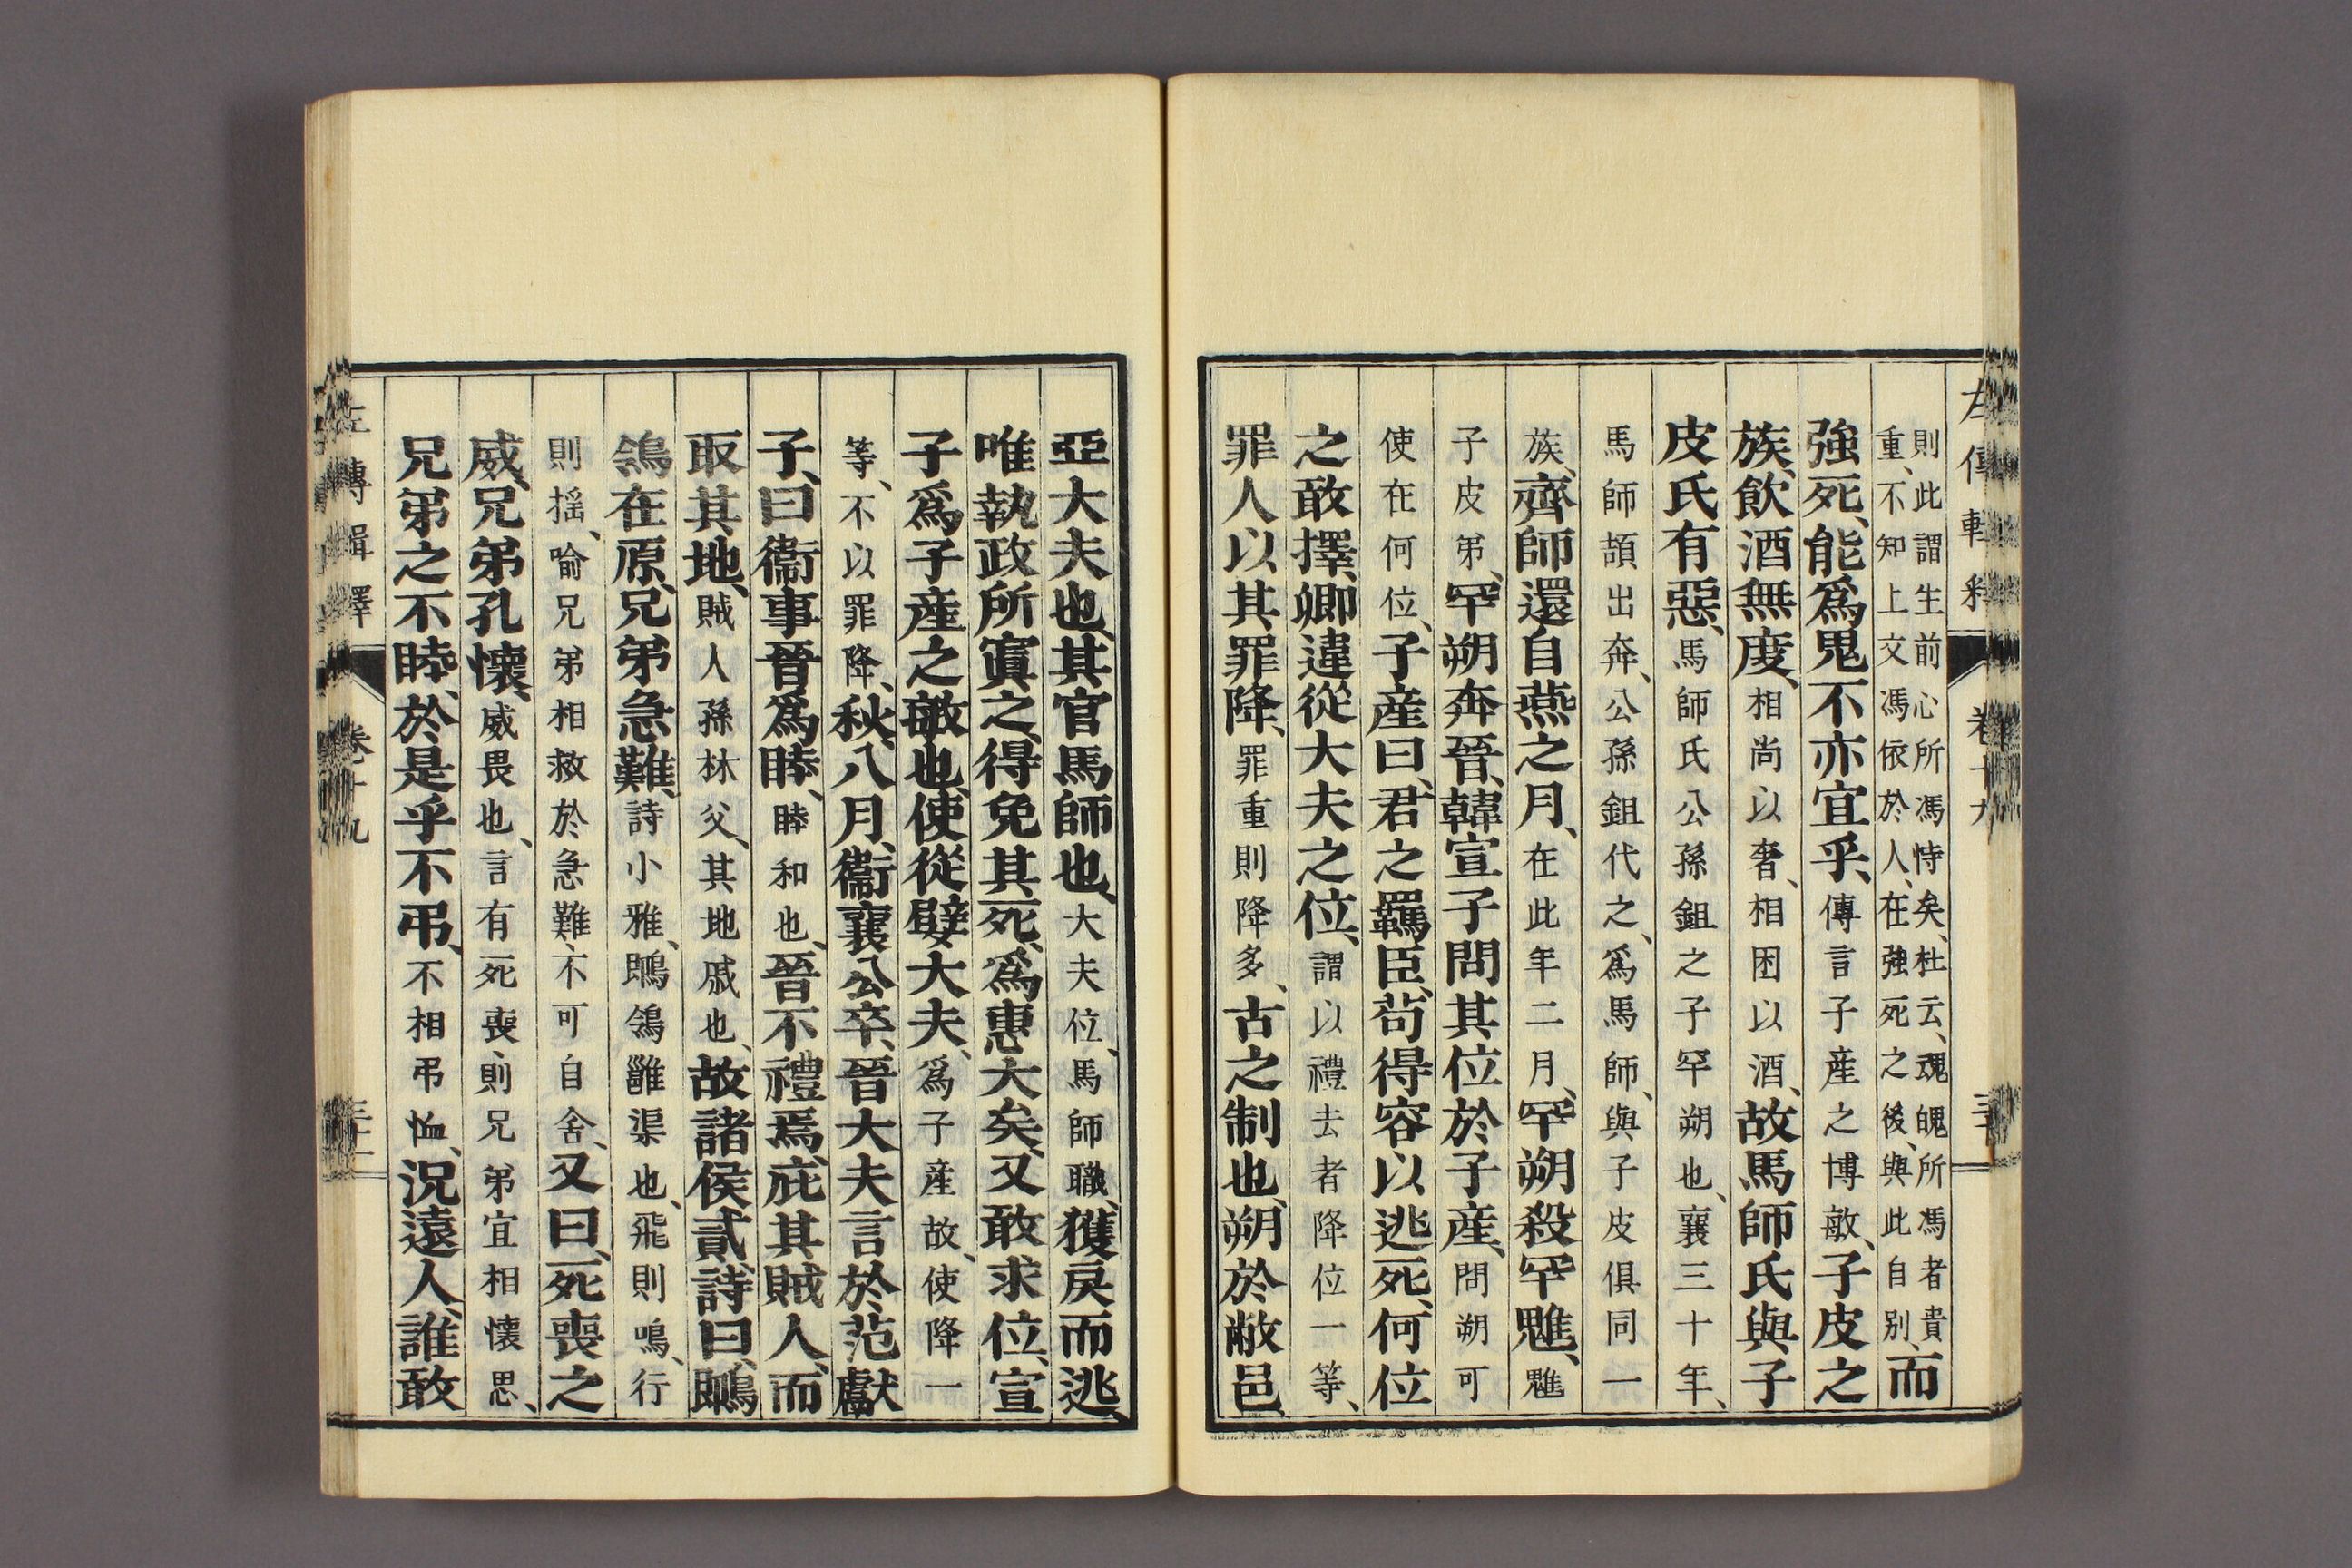 則此謂生前心所馮恃矣、杜云、魂魄所馮者貴
重、不知上文馮依於人、在強死之後、與此自別、而
強死、能爲鬼、不亦宜乎、傳言子産之博敏、子皮之
族、飲酒無度、相尚以奢、相困以酒、故馬師氏與子
皮氏有惡、馬師氏公孫鉏之子罕朔也、襄三十年、
馬師頡出奔、公孫鉏代之、爲馬師、與子皮俱同一
族、齊師還自燕之月、在此年二月、罕朔殺罕魋、魋
子皮弟、罕朔奔晉、韓宣子問其位於子産、問朔可
使在何位、子産曰、君之羈臣、苟得容以逃死、何位
之敢擇、卿違從大夫之位、謂以禮去者降位一等、
罪人以其罪降、罪重則降多、古之制也、朔於敝邑、
亞大夫也、其官馬師也、大夫位、馬師職、獲戾而逃、
唯執政所寘之、得免其死、爲惠大矣、又敢求位、宣
子爲子産之敏也、使從嬖大夫、爲子産故、使降一
等、不以罪降、秋、八月、衞襄公卒、晉大夫言於范獻
子、曰衞事晉爲睦、睦和也、晉不禮焉、庇其賊人、而
取其地、賊人孫林父、其地戚也、故諸侯貳、詩曰、鵙
鴒在原、兄弟急難、詩小雅、鵙鴒雝渠也、飛則鳴、行
則揺、喻兄弟相救於急難、不可自舍、又曰、死喪之
威、兄弟孔懷、威畏也、言有死喪、則兄弟宜相懷思、
兄弟之不睦、於是乎不弔、不相弔恤、況遠人、誰敢
左傳輯釋
卷十九